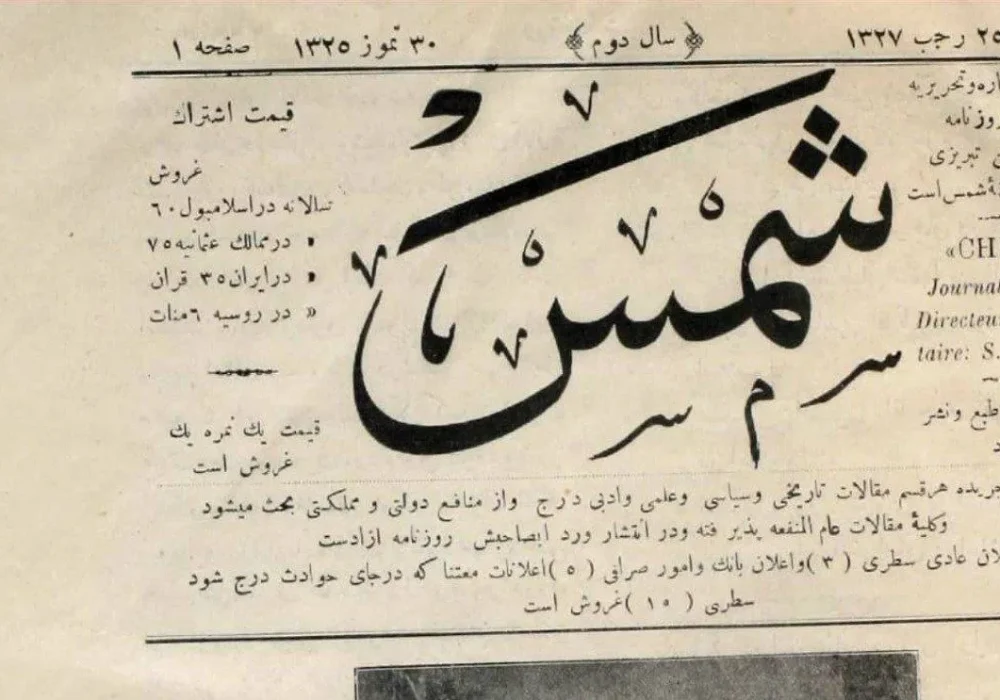 ٢٥ رجب ١٣٢٧ ﴿ سال دوم ﴾ ٣٠ تموز ١٣٢٥ صفحه ١
وتحریریه
روزنامه
تبریزی
شمس است
«CH
Journal
Directeu
taire: S.
طبع و نشر
شمس
قیمت اشتراك
غروش
سالانه دراسلامبول ٦٠
» درممالك عثمانیه ٧٥
» درایران ٣٥ قران
» در روسیه ٦ منات
قیمت یك نمره یك
غروش است
جریده هرقسم مقالات تاریخی وسیاسی وعلمی وادبی درج واز منافع دولتی و مملکتی بحث میشود
وکلیهٔ مقالات عام المنفعه پذیر فته ودر انتشار ورد ابصاحبش روزنامه ازادست
عادی سطری ( ٣ )واعلان بانك وامور صرافی ( ٥ )اعلانات معتنا که درجای حوادث درج شود
سطری ( ١٥ )غروش است